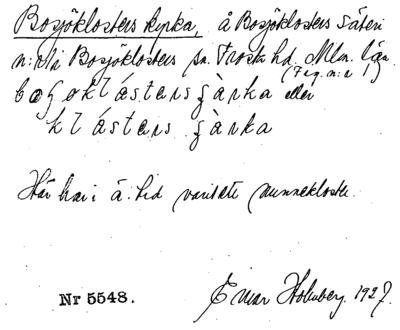 Bosjöklosters kyrka, å Bosjöklosters säteri
n:r 1 i Bosjöklosters sn. Frosta hd. Mlm. län.
(Feg. n:r 1)
klástærs ʃàrka eller
klástærs ʃàrka
Här har i ä. tid varit ett nunnekloster.
Nr 5548.
Einar Holmberg. 1927.